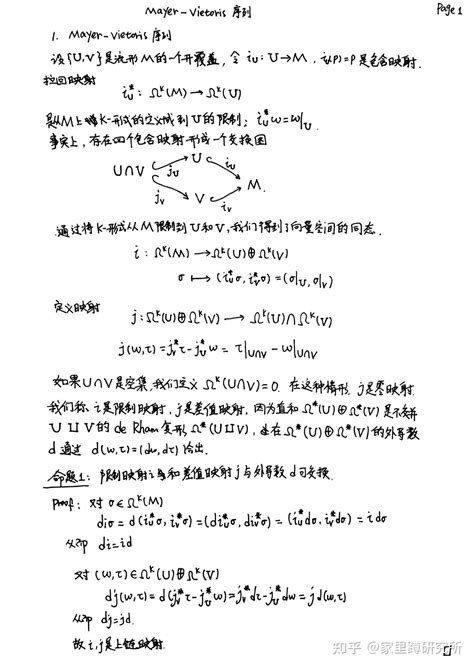 Mayer-Vietoris 序列
Page 1
1. Mayer-Vietoris 序列
设{U,V}是流形M的一个开覆盖, 令 i_U: U→M, i_U(p)=p 是包含映射.
拉回映射
i_U^*: Ω^k(M) → Ω^k(U)
是从M上将K-形式的定义域到U的限制: i_U^* w = w|_U.
事实上, 存在四个包含映射形成一个交换图
U∩V j_U U i_U
j_V V i_V M.
通过将K-形式从M限制到U和V, 我们得到了向量空间的同态.
i: Ω^k(M) → Ω^k(U)⊕Ω^k(V)
σ ↦ (i_U^*σ, i_V^*σ) = (σ|_U, σ|_V)
定义映射
j: Ω^k(U)⊕Ω^k(V) → Ω^k(U)∩Ω^k(V)
j(w,τ) = j_V^*τ - j_U^*w = τ|_{U∩V} - w|_{U∩V}
如果U∩V是空集, 我们定义 Ω^k(U∩V)=0. 在这种情形, j是零映射.
我们称 i是限制映射, j是差值映射, 因为直和 Ω^*(U)⊕Ω^*(V) 是不交并
U⊔V 的 de Rham 复形 Ω^*(U⊔V), 在 Ω^*(U)⊕Ω^*(V) 的外导数
d 通过 d(w,τ)=(dw,dτ) 给出.
命题1: 限制映射 i 和差值映射 j 与外导数 d 可交换.
Proof: 对 σ∈Ω^k(M)
diσ = d(i_U^*σ, i_V^*σ) = (di_U^*σ, di_V^*σ) = (i_U^*dσ, i_V^*dσ) = i dσ
从而 di=id
对 (w,τ)∈Ω^k(U)⊕Ω^k(V)
dj(w,τ) = d(j_V^*τ - j_U^*w) = j_V^*dτ - j_U^*dw = j d(w,τ)
从而 dj=jd.
故 i, j 是上链映射.
知乎 @家里蹲研究所